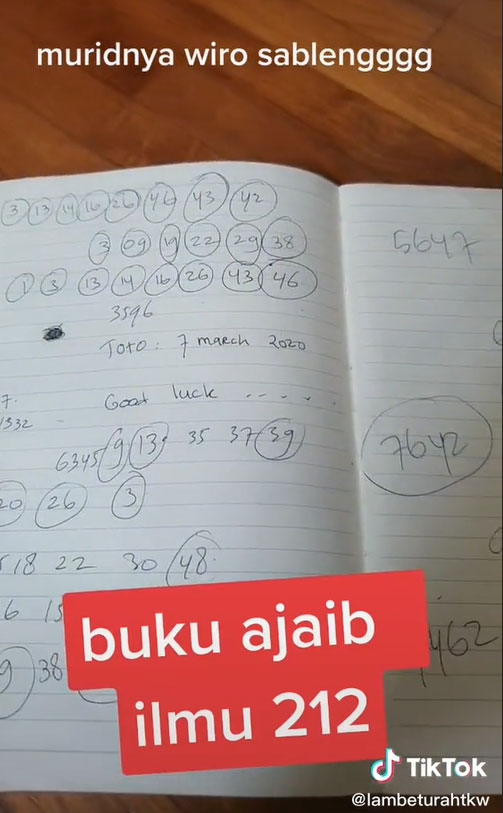 muridnya wiro sablengggg
3 13 14 16 26 46 43 42
3 09 19 22 29 38
5647
1 3 13 14 16 26 43 46
3596
Toto: 7 march 2020
7.
Good luck ......
1332
6345 9 13 35 37 39
7642
20 26 3
18 22 30 48
6
9 38
462
buku ajaib
ilmu 212
TikTok
@lambeturahtkw